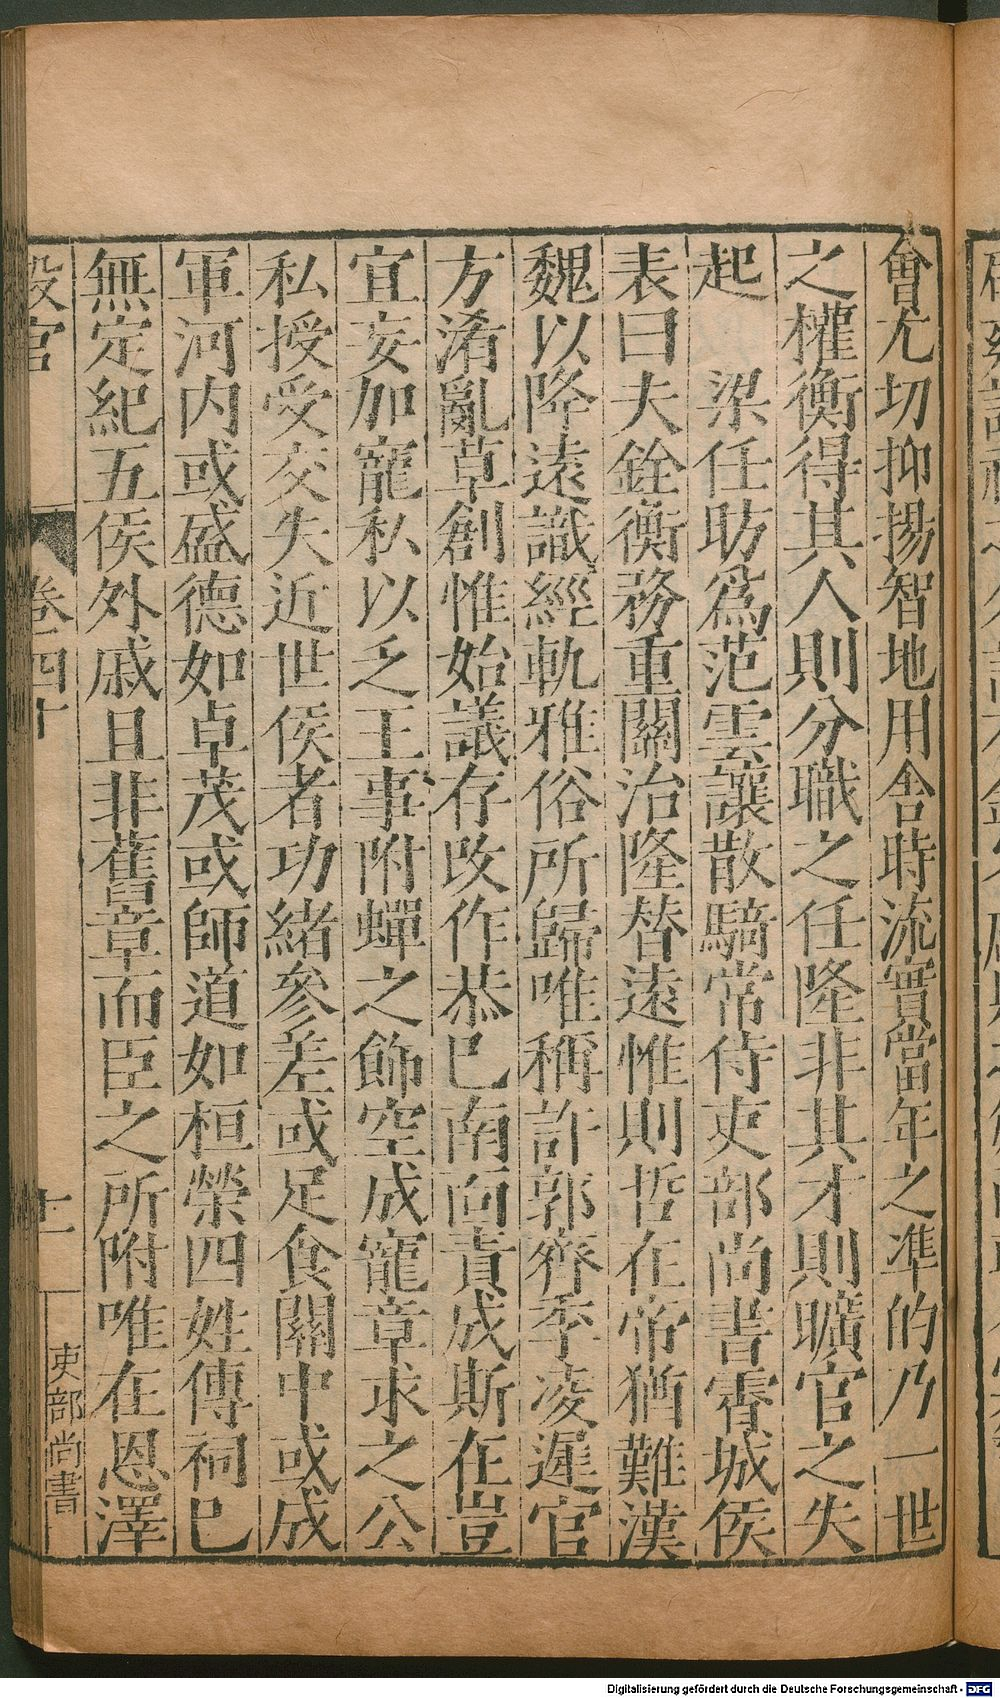 會尤切抑揚智地用舍時流實當年之準的乃一世
之權衡得其人則分職之任隆非其才則曠官之失
起　梁任昉爲范雲讓散騎常侍吏部尚書霄城侯
表曰夫銓衡務重關治隆替遠惟則哲在帝猶難漢
魏以降遠識經軌雅俗所歸唯稱許郭齊季凌遲官
方淆亂草創惟始議存改作恭巳南面責成斯在豈
宜妄加寵私以乏王事附蟬之飾空成寵章求之公
私授受交失近世侯者功緒參差或足食關中或成
軍河内或盛德如卓茂或師道如桓榮四姓傳祠巳
無定紀五侯外戚且非舊章而臣之所附唯在恩澤
設官　卷四十　十一　吏部尚書
Digitalisierung gefördert durch die Deutsche Forschungsgemeinschaft - DFG